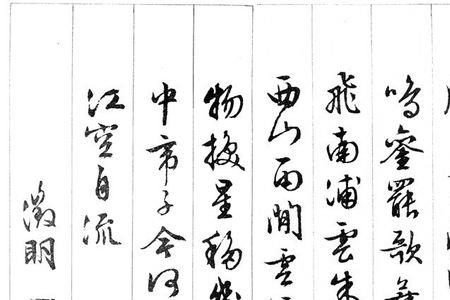 鳴鑾罷歌舞
飛南浦雲朱
西山雨閒雲
物換星移幾
中帝子今何
江空自流
徵明